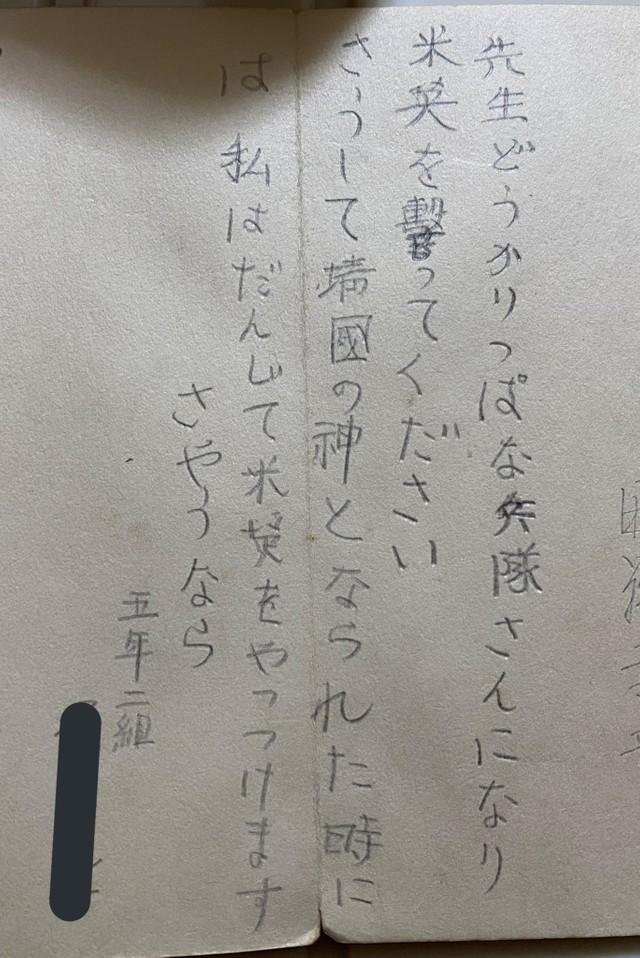 先生どうかりっぱな兵隊さんになり
米英を擊ってください
さうして靖國の神となられた時に
は私はだんじて米英をやっつけます
さやうなら
五年二組